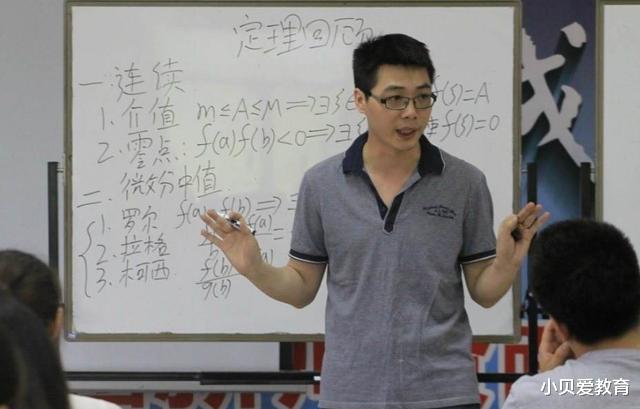 定理回顾
一.连续
1.介值 m≤A≤M⟹∃ξ f(ξ)=A
2.零点:f(a)f(b)<0⟹∃ξ 使f(ξ)=0
二.微分中值
1.罗尔 f(a) f(b)⟹
2.拉格 f(a)
3.柯西 f(b) (a)
g(b)
小贝爱教育